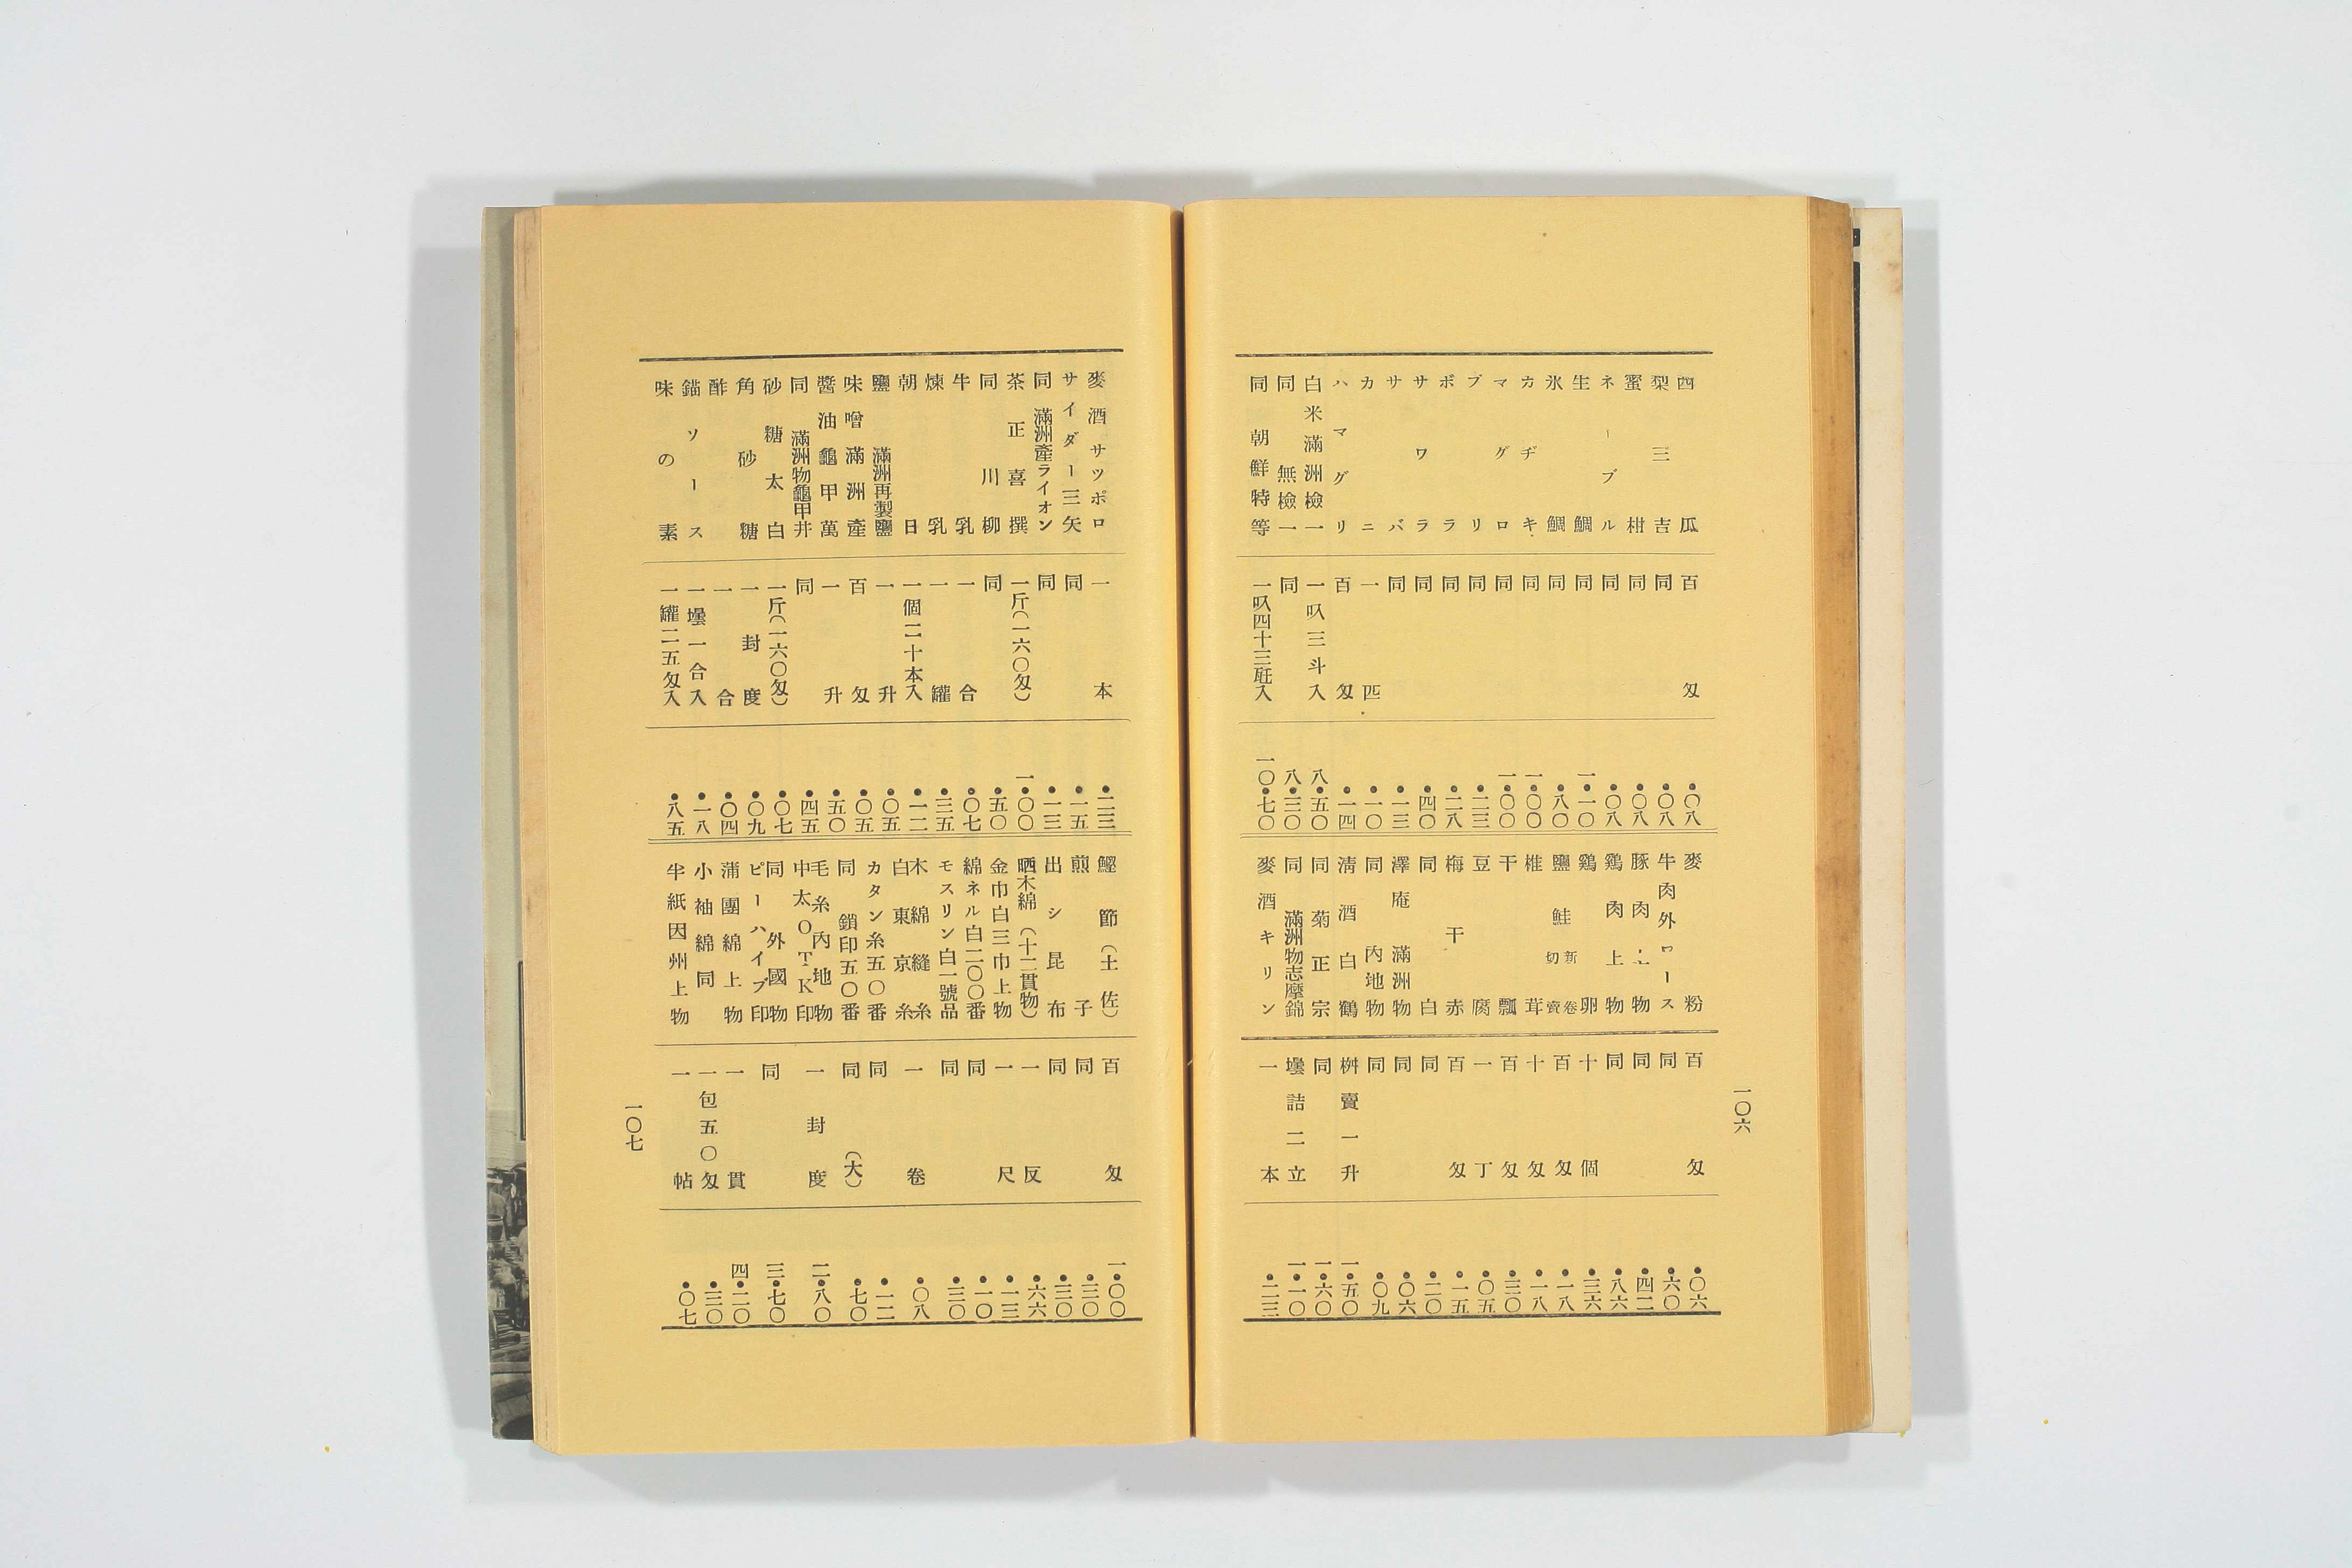 一〇六
西瓜 百匁 •〇八
梨三吉 同 •〇八
蜜柑 同 •〇八
ネーブル 同 •〇八
生鯛 同 一•一〇
氷鯛 同 •八〇
カヂキ 同 一•〇〇
マグロ 同 一•〇〇
ブリ 同 •二三
ボラ 同 •二八
サワラ 同 •四〇
サバ 同 •一三
カニ 一匹 •一〇
ハマグリ 百匁 •一四
白米滿洲檢一 一叺三斗入 八•五〇
同無檢一 同 八•三〇
同朝鮮特等 一叺四十三瓩入 一〇•七〇
麥粉 百匁 •〇六
牛肉外ロース 同 •六〇
豚肉上物 同 •四二
鷄肉上物 同 •八六
鷄卵 十個 •三六
鹽鮭新卷切賣 百匁 •一八
椎茸 十匁 •一八
干瓢 百匁 •三〇
豆腐 一丁 •〇五
梅干赤 百匁 •一五
同白 同 •二〇
澤庵滿洲物 同 •〇六
同內地物 同 •〇九
淸酒白鶴 桝賣一升 一•五〇
同菊正宗 同 一•六〇
同滿洲物志摩錦 壜詰二立 一•一〇
麥酒キリン 一本 •二三
麥酒サツポロ 一本 •二三
サイダー三矢 同 •一五
同滿洲產ライオン 同 •一三
茶正喜撰 一斤(一六〇匁) 一•〇〇
同川柳 同 •五〇
牛乳 一合 •〇七
煉乳 一罐 •三五
朝日 一個二十本入 •一二
鹽滿洲再製鹽 一升 •〇五
味噌滿洲產 百匁 •〇五
醬油龜甲萬 一升 •五〇
同滿洲物龜甲井 同 •四五
砂糖太白 一斤(一六〇匁) •〇七
角砂糖 一封度 •〇九
酢 一合 •〇四
錨ソース 一壜一合入 •一八
味の素 一罐二五匁入 •八五
鰹節(土佐) 百匁 一•〇〇
煎子 同 •三〇
出シ昆布 同 •三〇
晒木綿(十二貫物) 一反 •六六
金巾白三巾上物 一尺 •一三
綿ネル白二〇〇番 同 •一〇
モスリン白一號品 同 •三〇
木綿縫糸
白東京糸 一卷 •〇八
カタン糸五〇番 同 •一二
同鎖印五〇番 同(大) •七〇
毛糸內地物
中太O.T.K印 一封度 二•八〇
同外國物
ピーハイブ印 同 三•七〇
蒲團綿上物 一貫 四•二〇
小袖綿同 一包五〇匁 •三〇
半紙因州上物 一帖 •〇七
一〇七